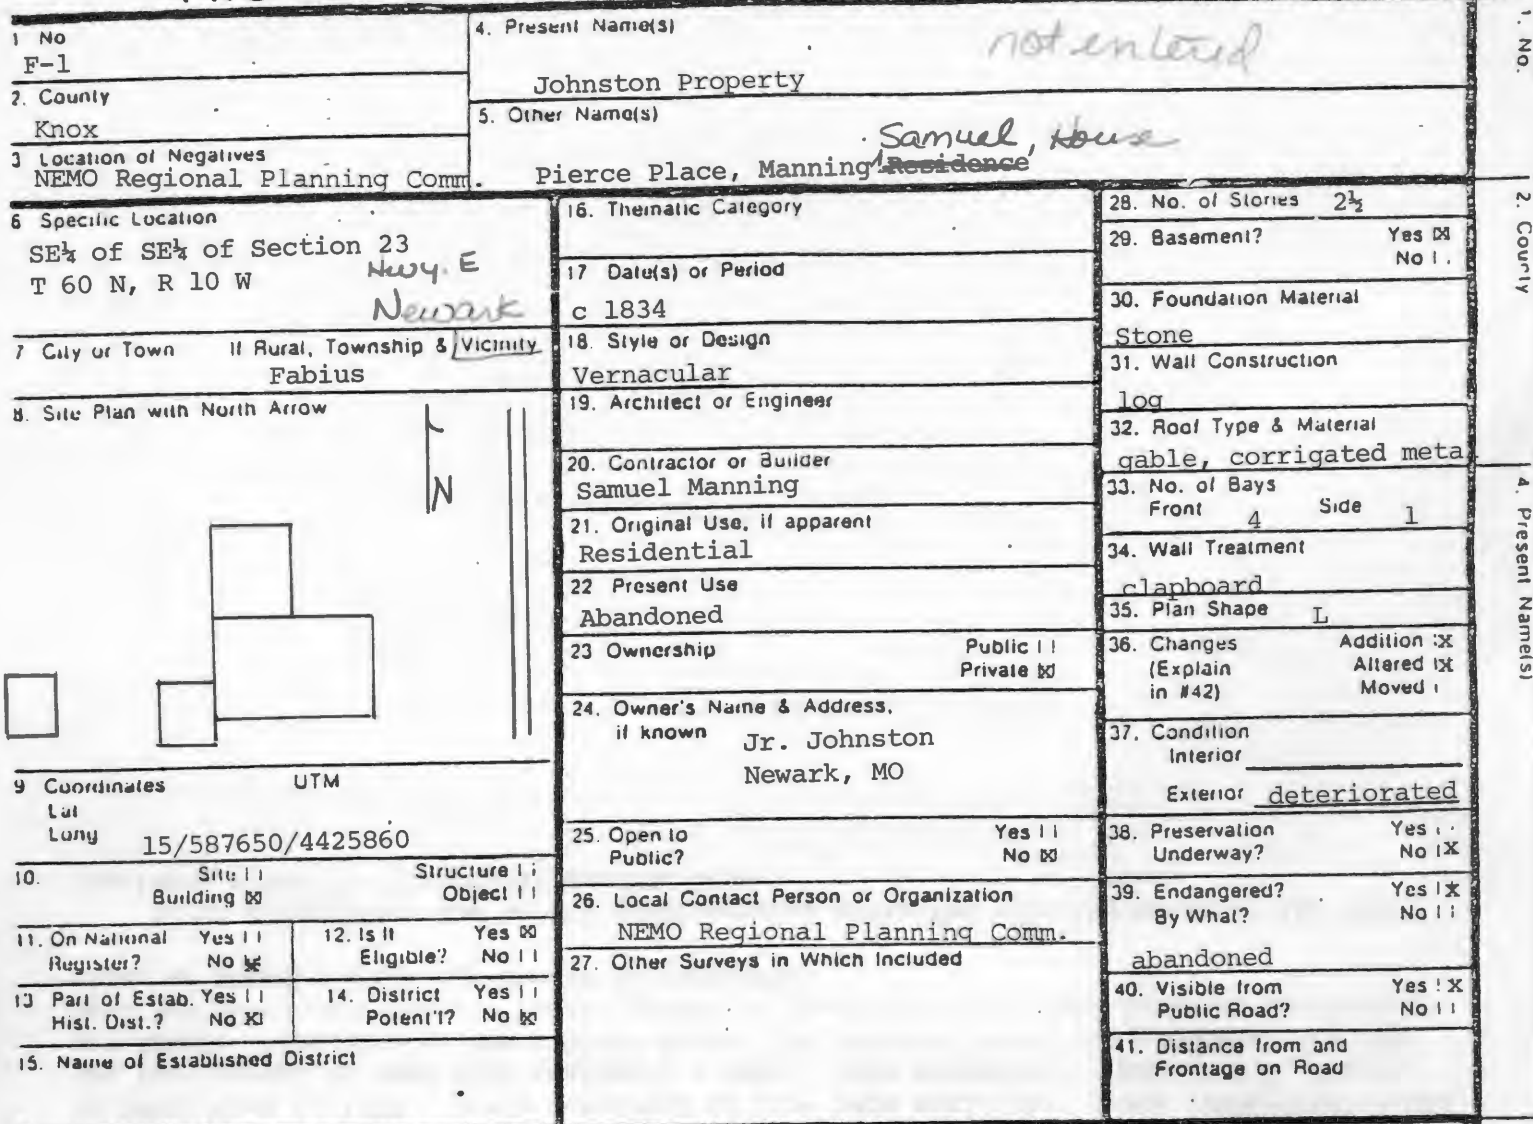 1 No
F-1
2. County
Knox
3 Location of Negatives
NEMO Regional Planning Comm.
4. Present Name(s)
not entered
Johnston Property
5. Other Name(s)
Samuel, House
Pierce Place, Manning Residence
6 Specific Location
SE¼ of SE¼ of Section 23
T 60 N, R 10 W
Hwy. E
Newark
7 City or Town If Rural, Township & Vicinity
Fabius
8. Site Plan with North Arrow
N
9 Coordinates UTM
Lat
Long
15/587650/4425860
10. Site
Structure
Building X
Object
11. On National Register? Yes
No X
12. Is It Eligible? Yes X
No
13 Part of Estab. Hist. Dist.? Yes
No X
14. District Potent'l? Yes
No X
15. Name of Established District
16. Thematic Category
17 Date(s) or Period
c 1834
18. Style or Design
Vernacular
19. Architect or Engineer
20. Contractor or Builder
Samuel Manning
21. Original Use, if apparent
Residential
22 Present Use
Abandoned
23 Ownership Public
Private X
24. Owner's Name & Address,
if known
Jr. Johnston
Newark, MO
25. Open to Yes
Public? No X
26. Local Contact Person or Organization
NEMO Regional Planning Comm.
27. Other Surveys in Which Included
28. No. of Stories 2½
29. Basement? Yes X
No
30. Foundation Material
Stone
31. Wall Construction
log
32. Roof Type & Material
gable, corrigated meta
33. No. of Bays
Front 4 Side 1
34. Wall Treatment
clapboard
35. Plan Shape L
36. Changes Addition X
(Explain Altered X
in #42) Moved
37. Condition
Interior
Exterior deteriorated
38. Preservation Yes
Underway? No X
39. Endangered? Yes X
By What? No
abandoned
40. Visible from Yes X
Public Road? No
41. Distance from and
Frontage on Road
1. No.
2. County
4. Present Name(s)